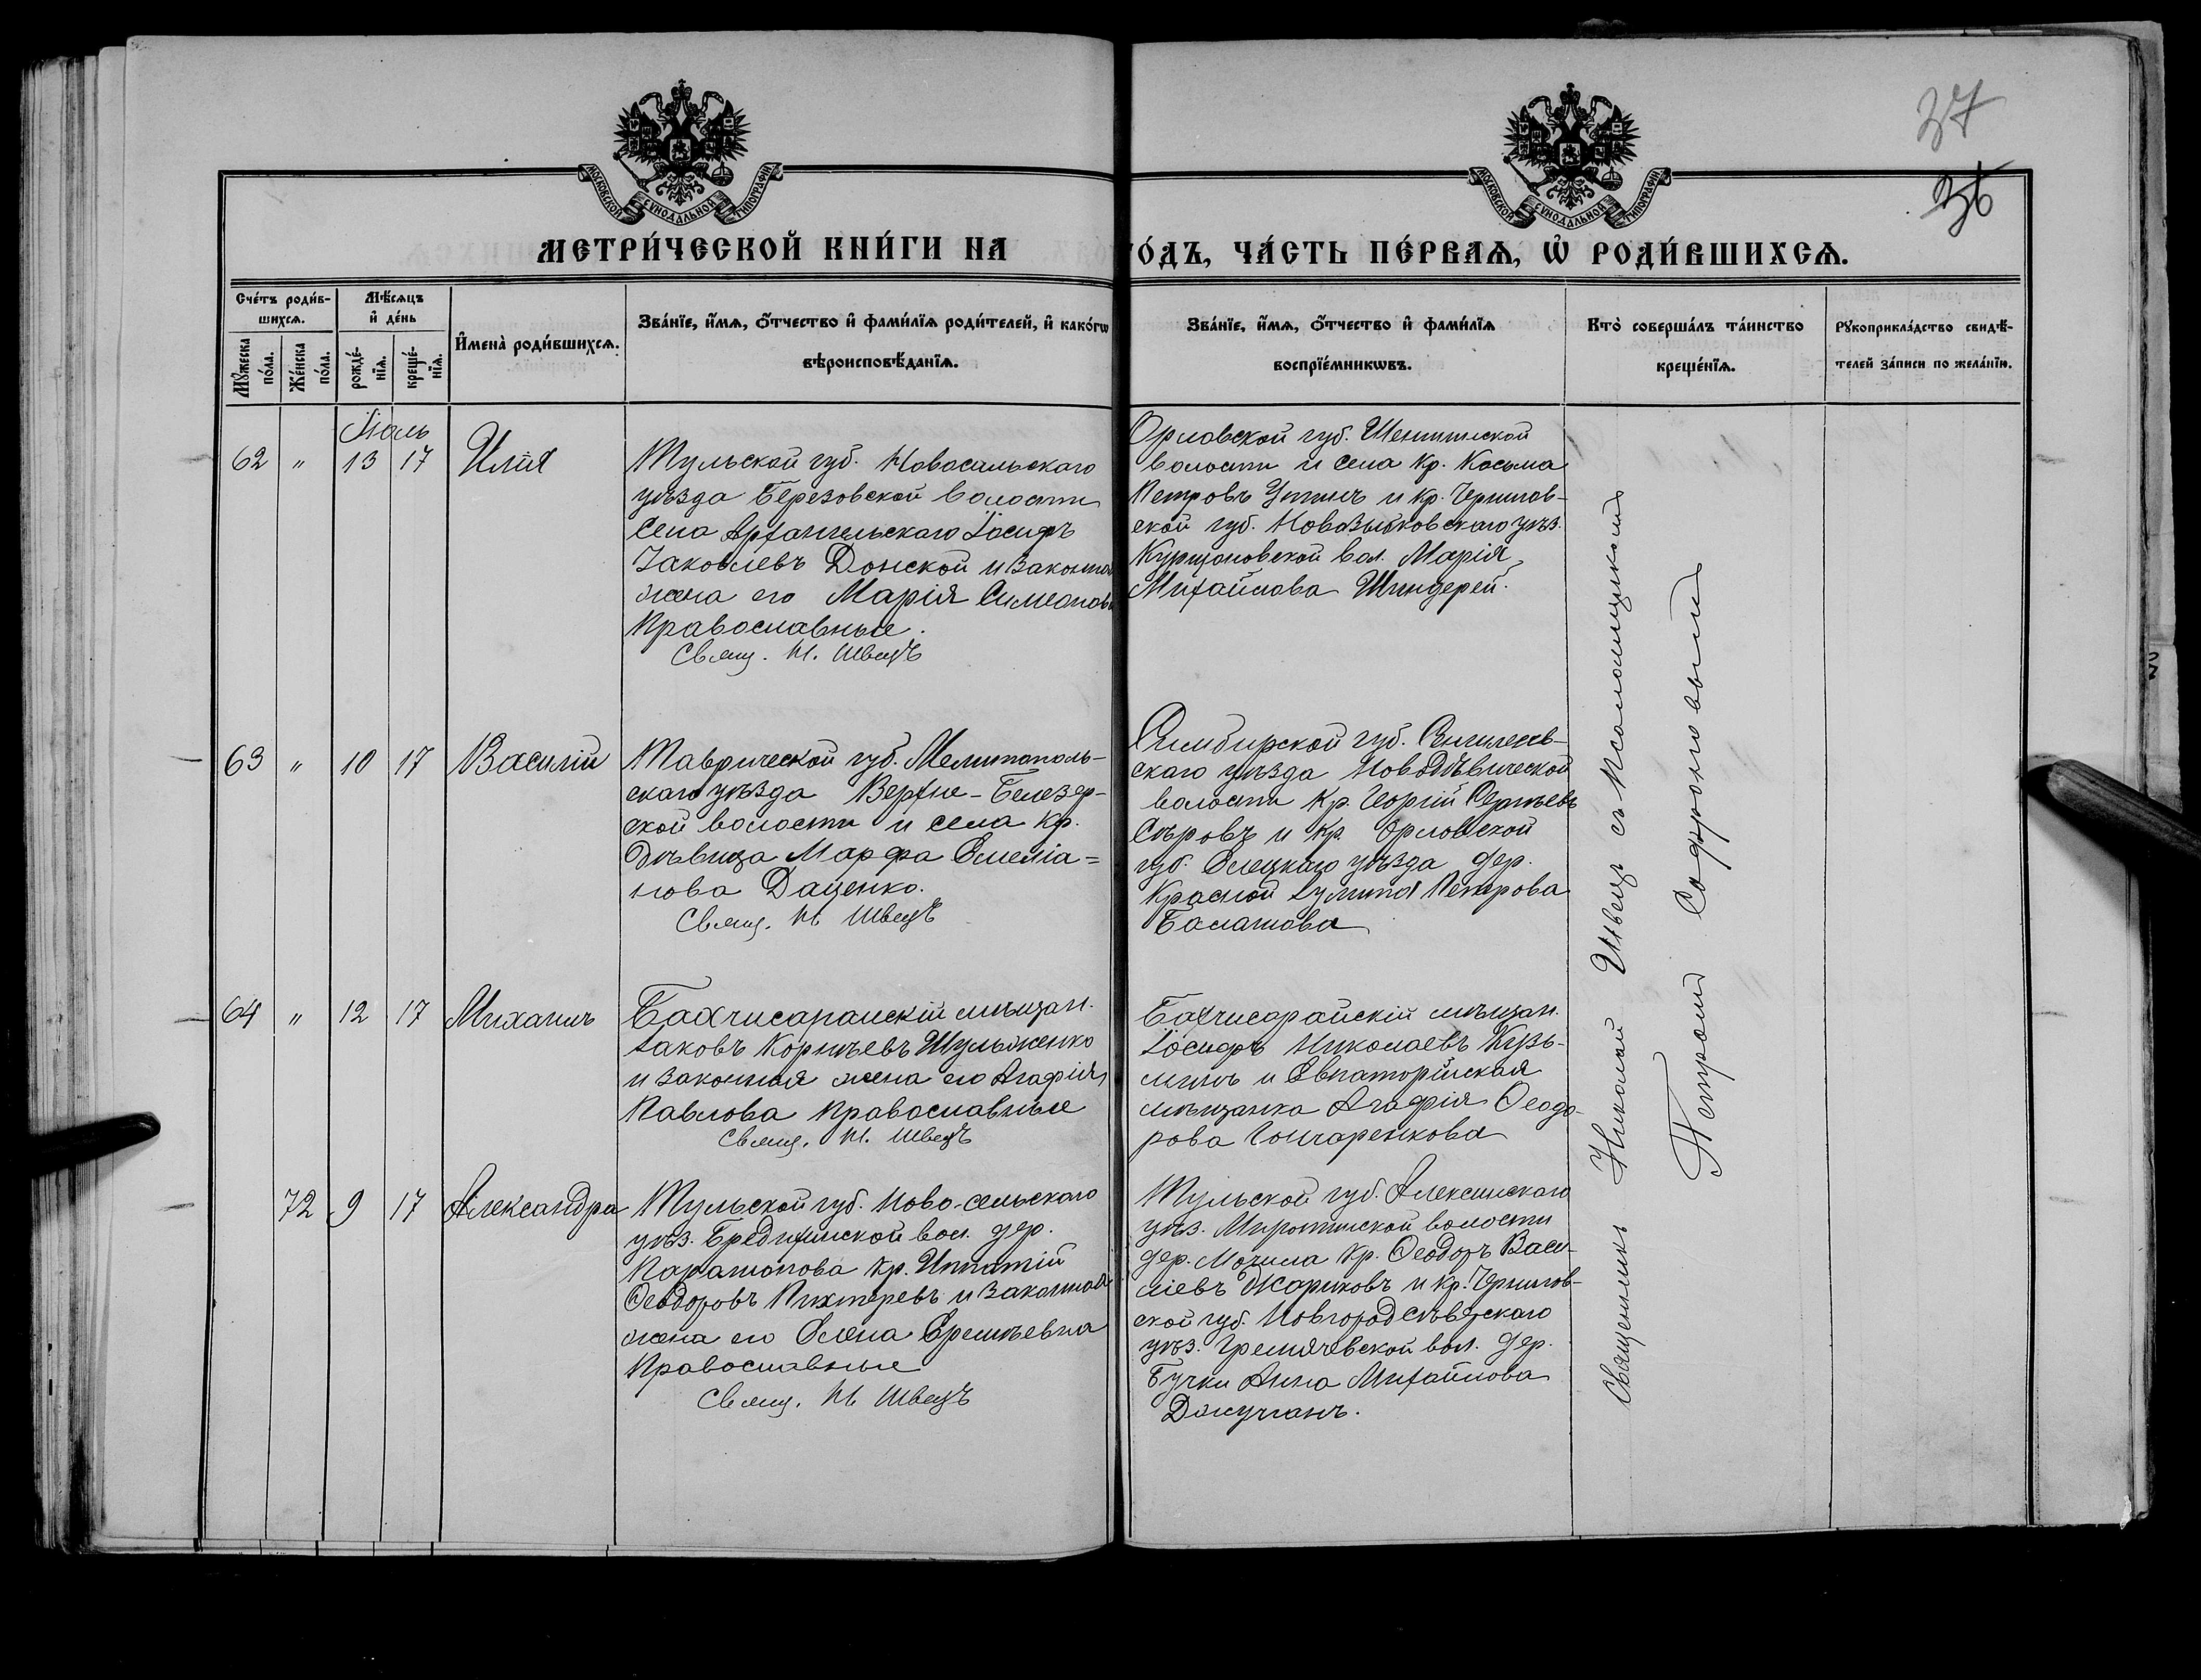 37
36
МОСКОВСКОЙ СѴНОДАЛЬНОЙ ТИПОГРАФІИ
МОСКОВСКОЙ СѴНОДАЛЬНОЙ ТИПОГРАФІИ
МЕТРИ́ЧЕСКОЙ КНИ́ГИ НА ГО́ДЪ, ЧА́СТЬ ПЕ́РВАѦ, Ѡ҆ РОДИ́ВШИХСѦ.
Сче́тъ роди́в-
шихсѧ.
Мꙋжеска по́ла.
Же́нска по́ла.
Мѣ́сѧцъ
и҆ де́нь
рожде́-
нїѧ.
креще́-
нїѧ.
И҆мена̀ роди́вшихсѧ.
Зва́нїе, и҆́мѧ, ѻ҆́тчество и҆ фами́лїѧ роди́телей, и҆ како́гѡ
вѣроисповѣ́данїѧ.
Зва́нїе, и҆́мѧ, ѻ҆́тчество и҆ фами́лїѧ
воспрїе́мникѡвъ.
Кто̀ соверша́лъ та́инство
креще́нїѧ.
Рꙋкоприкла́дство свидѣ́-
телей за́писи по жела́нїю.
Іюль
62 " 13 17 Илія
Тульской губ. Новосильскаго
уѣзда Березовской волости
села Архангельскаго Іосифъ
Іаковлевъ Донской и законная
жена его Марія Симеонов
Православные.
Свящ. Н. Швецъ
Орловской губ.
волости и села кр. Косьма
Петровъ и кр. Чернигов-
ской губ. Новозыбковскаго уѣз.
вол. Марія
Михайлова Шиндерей.
63 " 10 17 Василій
Таврической губ. Мелитополь-
скаго уѣзда Верхне-Белезер-
ской волости и села кр.
дѣвица Марфа Емеліа=
нова Даценко.
Свящ. Н. Швецъ
Симбирской губ. Сенгилеев-
скаго уѣзда Новодѣвической
волости кр. Георгій Сергѣевъ
Сѣровъ и кр. Орловской
губ. Елецкаго уѣзда дер.
Красной Петрова
Балашова
64 " 12 17 Михаилъ
Бахчисарайскій мѣщан.
Іаковъ Корнѣевъ Шульженко
и законная жена его Агафія
Павлова православные
Свящ. Н. Швецъ
Бахчисарайскій мѣщан.
Іосифъ Николаевъ Кузь-
минъ и Евпаторійская
мѣщанка Агафія Ѳеодо-
рова Гончаренкова
72 9 17 Александра
Тульской губ. Ново-сельскаго
уѣз. Бредихинской вол. дер.
Парамонова кр. Ипатій
Ѳеодоровъ Пихтеревъ и законная
жена его Елена Еремѣевна
Православные
Свящ. Н. Швецъ
Тульской губ. Алексинскаго
уѣз. Миротинской волости
дер. Мочила кр. Ѳеодоръ Васи-
ліевъ Жариковъ и кр. Чернигов-
ской губ. Новгородсѣверскаго
уѣз. Гремячевской вол. дер.
Бучки Анна Михайлова
Джучганъ.
Священникъ Николай Швецъ съ Псаломщикомъ
Петромъ Софроновымъ